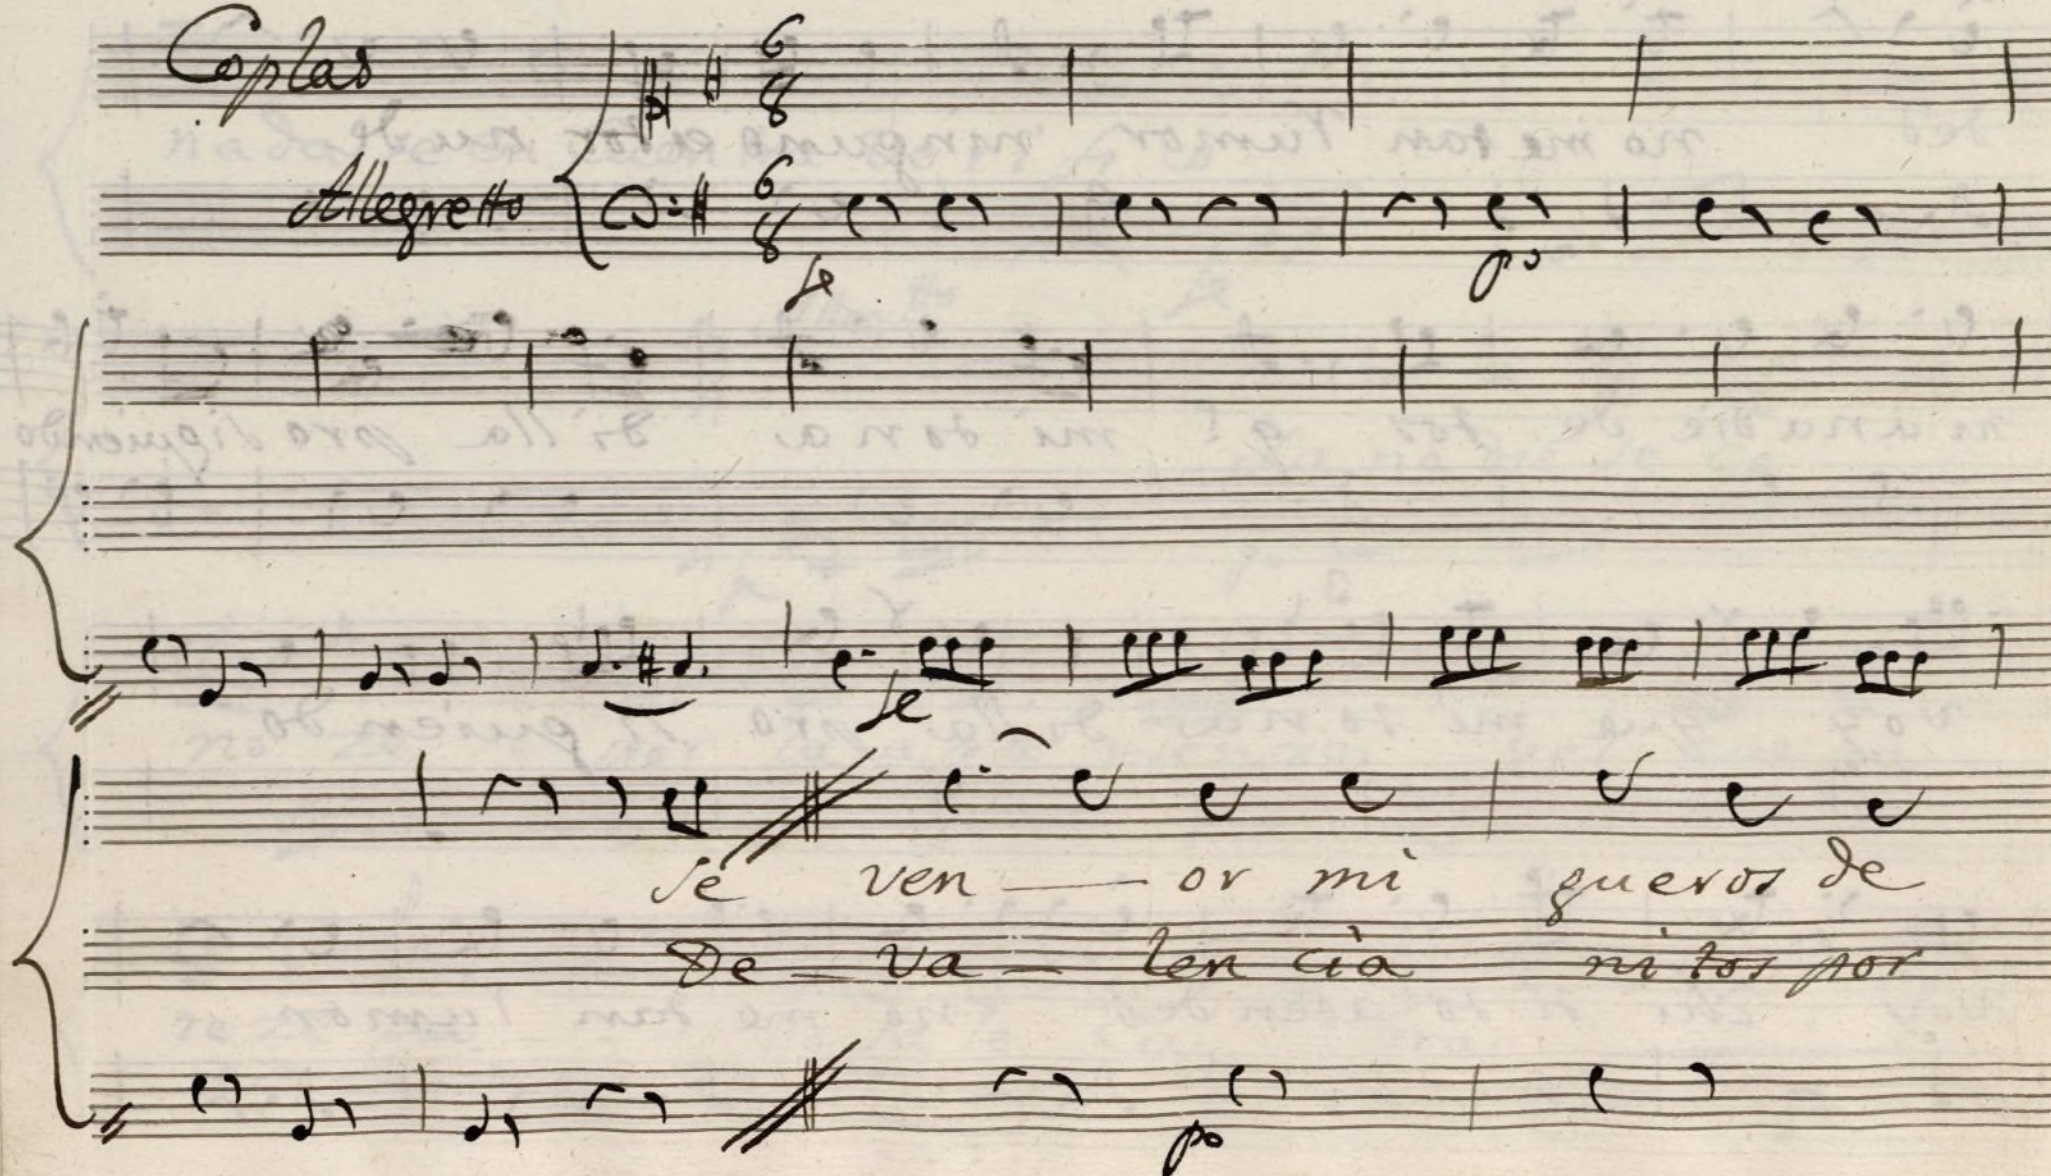 Coplas
6 8
Allegretto 6 8
fe po
fe
se ven — or mi queros de
De – va – len cia nitos por
po